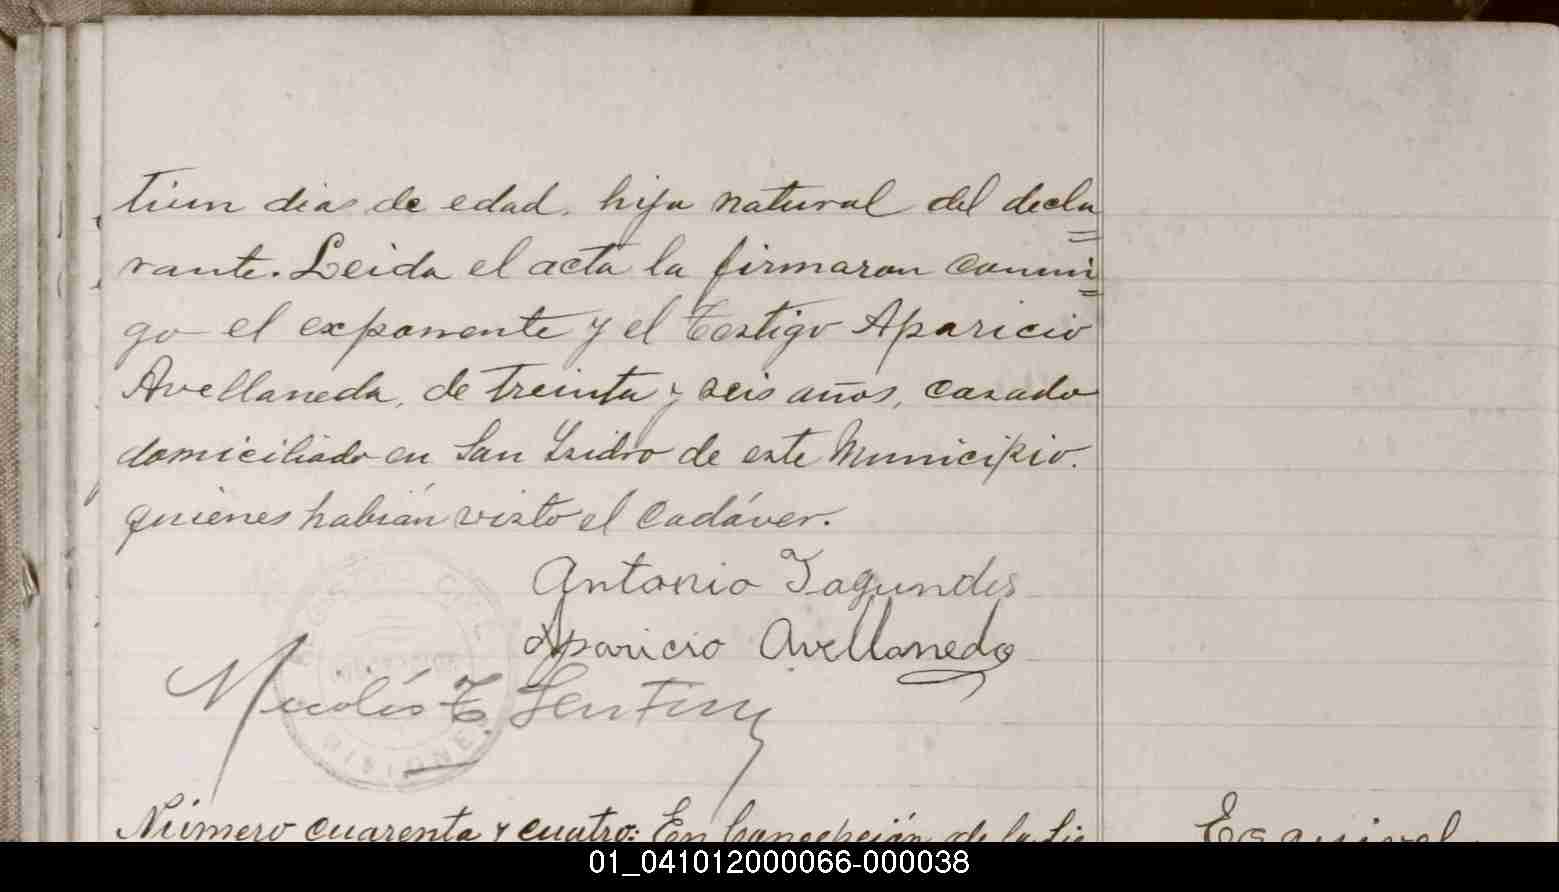 tiun dias de edad, hija natural del decla=
rante. Leida el acta la firmaron conmi=
go el exponente y el testigo Aparicio
Avellaneda, de treinta y seis años, casado
domiciliado en San Isidro de este Municipio.
quienes habián visto el cadáver.
Antonio Fagundes
Aparicio Avellaneda
Nicolás T.
MISIONES
Número cuarenta y cuatro: En Concepción de la Sie
Esquivel
01_041012000066-000038